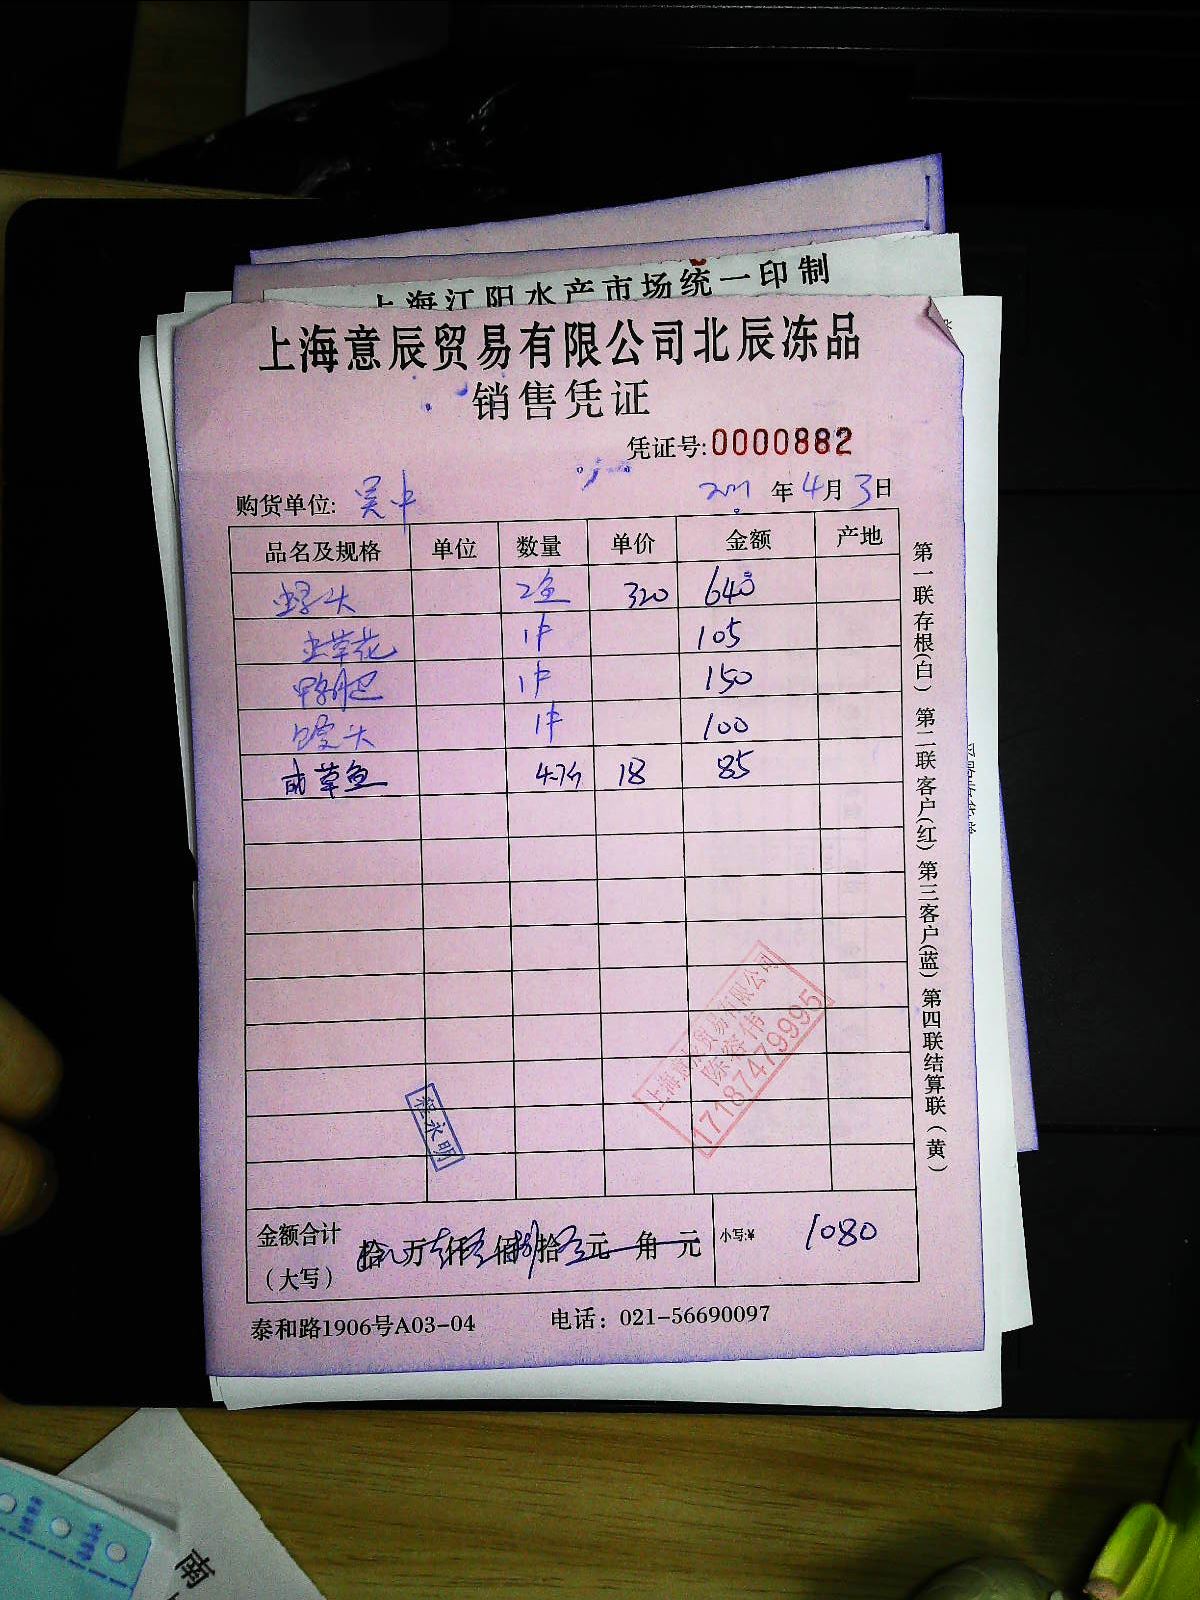 上海江阳水产市场统一印制
上海意辰贸易有限公司北辰冻品
销售凭证
凭证号:0000882
购货单位: 吴中 年 4月 3日
品名及规格 单位 数量 单价 金额 产地
320 640
虫草花 1件 105
1件 150
馒头 1件 100
草鱼 4.7斤 18 85
上海意辰贸易有限公司
17187479995
程永明
金额合计
(大写) 拾 万 仟 佰 拾 元 角 元 小写:¥ 1080
泰和路1906号A03-04 电话: 021-56690097
第一联存根(白) 第二联客户(红) 第三客户(蓝) 第四联结算联(黄)
南